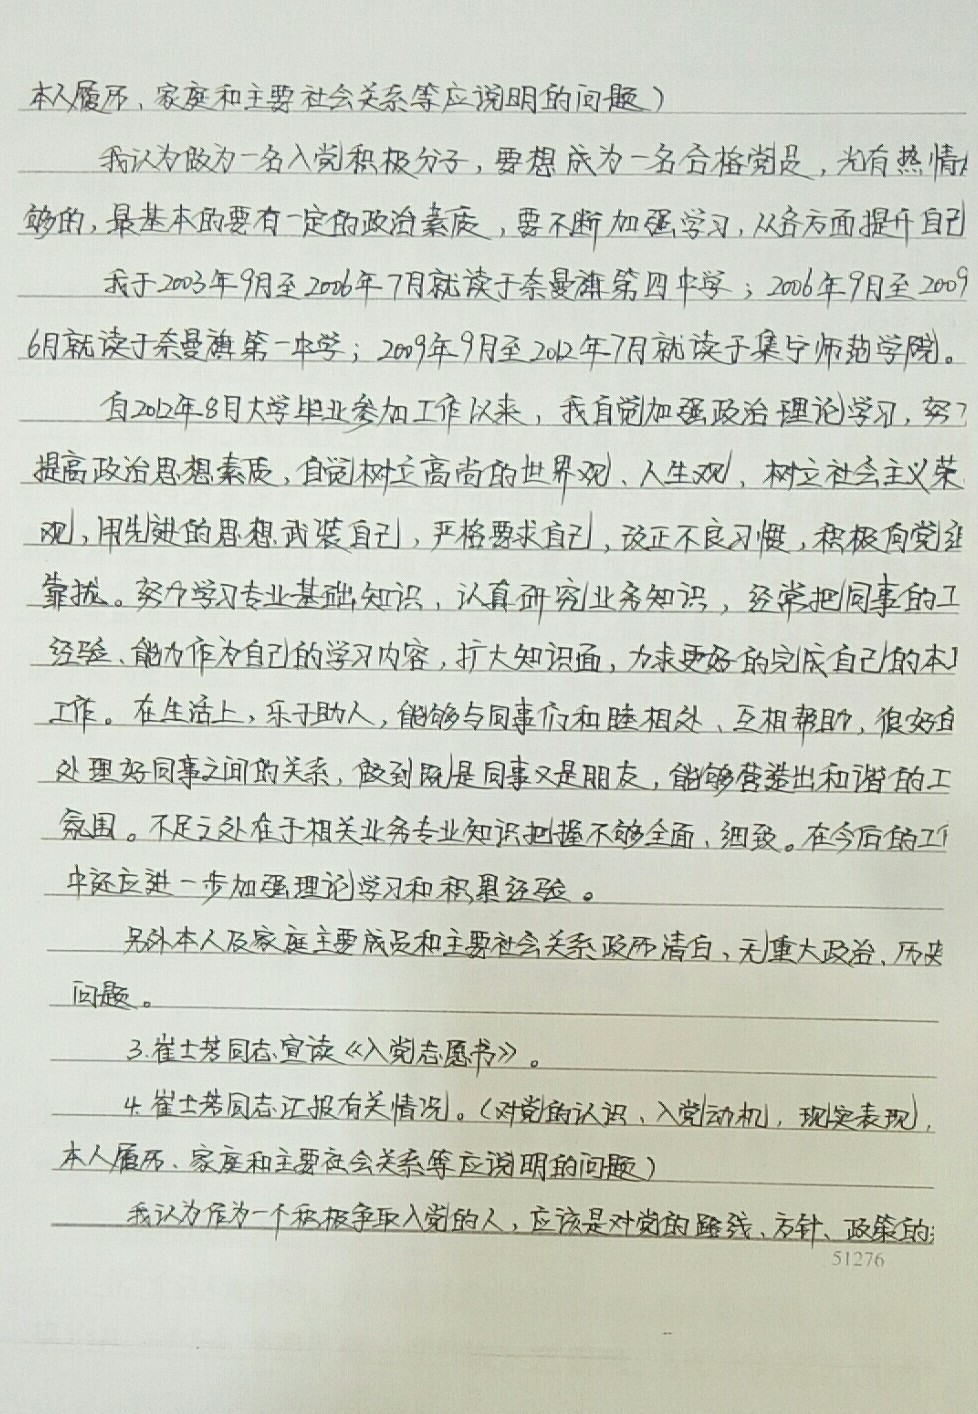 本人履历、家庭和主要社会关系等应说明的问题）
我认为做为一名入党积极分子，要想成为一名合格党员，光有热情
够的，最基本的要有一定的政治素质，要不断加强学习，从各方面提升自己
我于2003年9月至2006年7月就读于奈曼旗第四中学；2006年9月至2009
6月就读于奈曼旗第一中学；2009年9月至2012年7月就读于集宁师范学院。
自2012年8月大学毕业参加工作以来，我自觉加强政治理论学习，努
提高政治思想素质，自觉树立高尚的世界观、人生观，树立社会主义荣
观，用先进的思想武装自己，严格要求自己，改正不良习惯，积极向党组
靠拢。努力学习专业基础知识，认真研究业务知识，经常把同事的工
经验、能力作为自己的学习内容，扩大知识面，力求更好的完成自己的本
工作。在生活上，乐于助人，能够与同事们和睦相处、互相帮助，很好
处理好同事之间的关系，做到既是同事又是朋友，能够营造出和谐的工
氛围。不足之处在于相关业务专业知识把握不够全面、细致。在今后的工
中还应进一步加强理论学习和积累经验。
另外本人及家庭主要成员和主要社会关系政历清白，无重大政治、历史
问题。
3.崔士芳同志宣读《入党志愿书》。
4.崔士芳同志汇报有关情况。（对党的认识、入党动机，现实表现，
本人履历、家庭和主要社会关系等应说明的问题）
我认为作为一个积极争取入党的人，应该是对党的路线、方针、政策的
51276